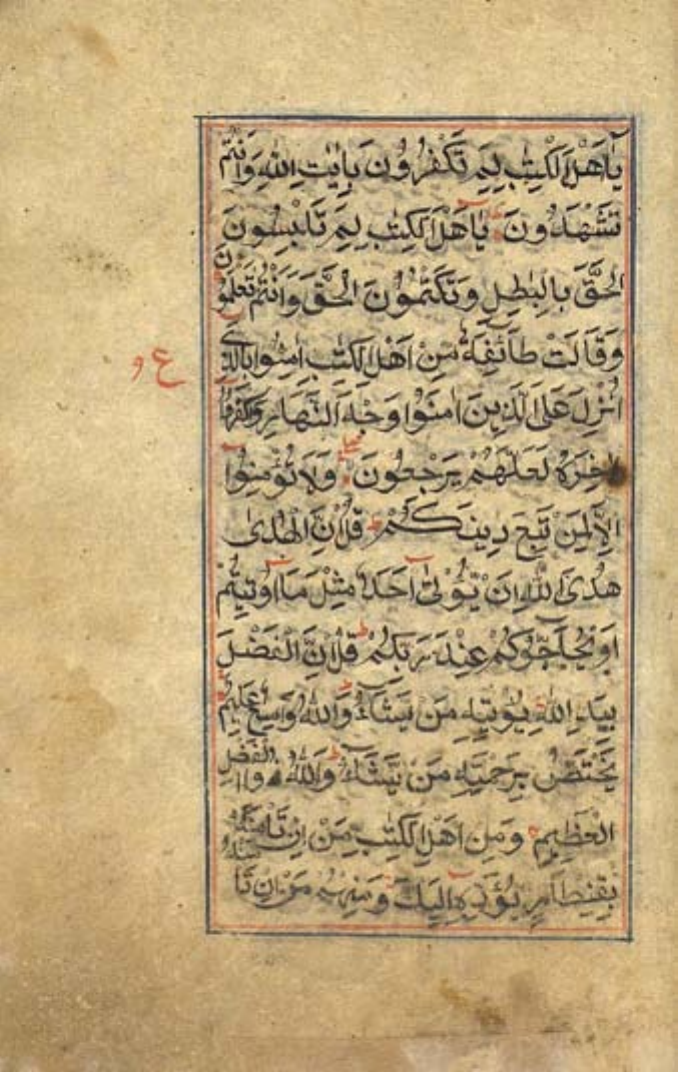 يٰاَهْلَ الْكِتٰبِ لِمَ تَكْفُرُوْنَ بِاٰيٰتِ اللّٰهِ وَاَنْتُمْ
تَشْهَدُوْنَ يٰاَهْلَ الْكِتٰبِ لِمَ تَلْبِسُوْنَ
الْحَقَّ بِالْبٰطِلِ وَتَكْتُمُوْنَ الْحَقَّ وَاَنْتُمْ تَعْلَمُوْنَ
وَقَالَتْ طَآئِفَةٌ مِنْ اَهْلِ الْكِتٰبِ اٰمِنُوْا بِالَّذِيْ
ع و
اُنْزِلَ عَلَى الَّذِيْنَ اٰمَنُوْا وَجْهَ النَّهَارِ وَاكْفُرُوْا
اٰخِرَهٗ لَعَلَّهُمْ يَرْجِعُوْنَ وَلَا تُؤْمِنُوْا
اِلَّا لِمَنْ تَبِعَ دِيْنَكُمْ قُلْ اِنَّ الْهُدٰى
هُدَى اللّٰهِ اَنْ يُؤْتٰى اَحَدٌ مِثْلَ مَا اُوْتِيْتُمْ
اَوْ يُحَآجُّوْكُمْ عِنْدَ رَبِّكُمْ قُلْ اِنَّ الْفَضْلَ
بِيَدِ اللّٰهِ يُؤْتِيْهِ مَنْ يَشَآءُ وَاللّٰهُ وَاسِعٌ عَلِيْمٌ
يَخْتَصُّ بِرَحْمَتِهٖ مَنْ يَشَآءُ وَاللّٰهُ ذُو الْفَضْلِ
الْعَظِيْمِ وَمِنْ اَهْلِ الْكِتٰبِ مَنْ اِنْ تَاْمَنْهُ
بِقِنْطَارٍ يُؤَدِّهٖ اِلَيْكَ وَمِنْهُمْ مَنْ اِنْ تَا